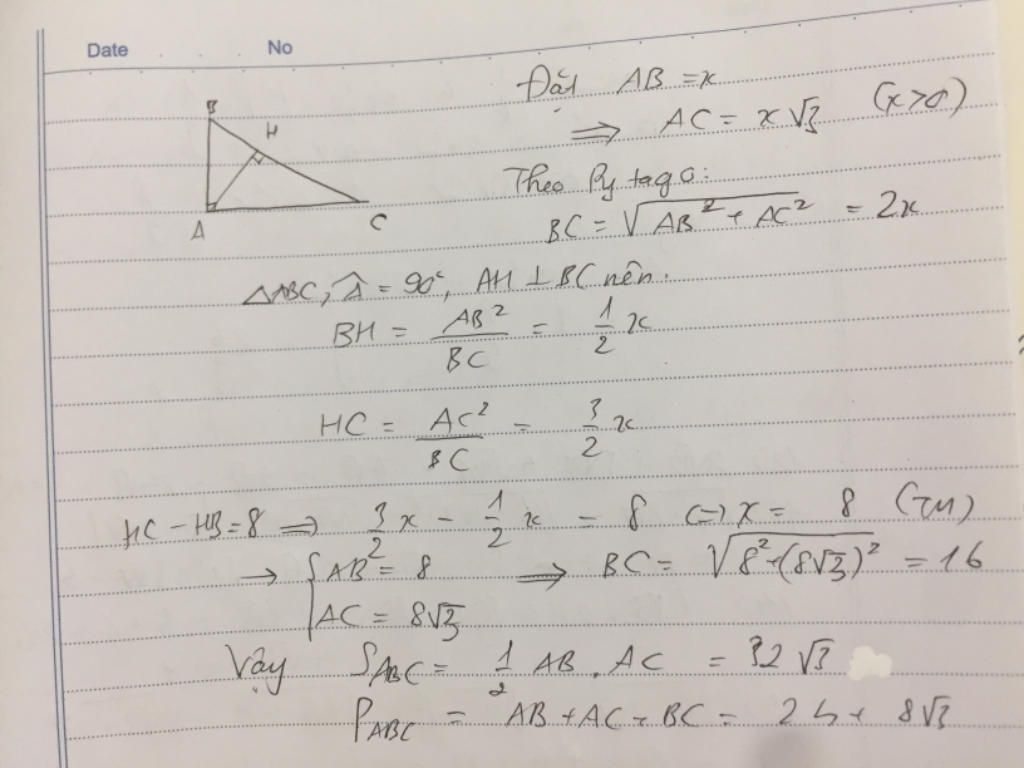 Date No
B
H
A C
Đặt AB = x
⇒ AC = x√3 (x>0)
Theo Pytago:
BC = √(AB² + AC²) = 2x
△ABC, Â = 90°, AH ⊥ BC nên:
BH = AB²/BC = 1/2 x
HC = AC²/BC = 3/2 x
HC - HB = 8 ⇒ 3/2 x - 1/2 x = 8 (=) x = 8 (TM)
→ { AB = 8 ⇒ BC = √(8² + (8√3)²) = 16
AC = 8√3
Vậy S_ABC = 1/2 AB . AC = 32√3
P_ABC = AB + AC + BC = 24 + 8√3